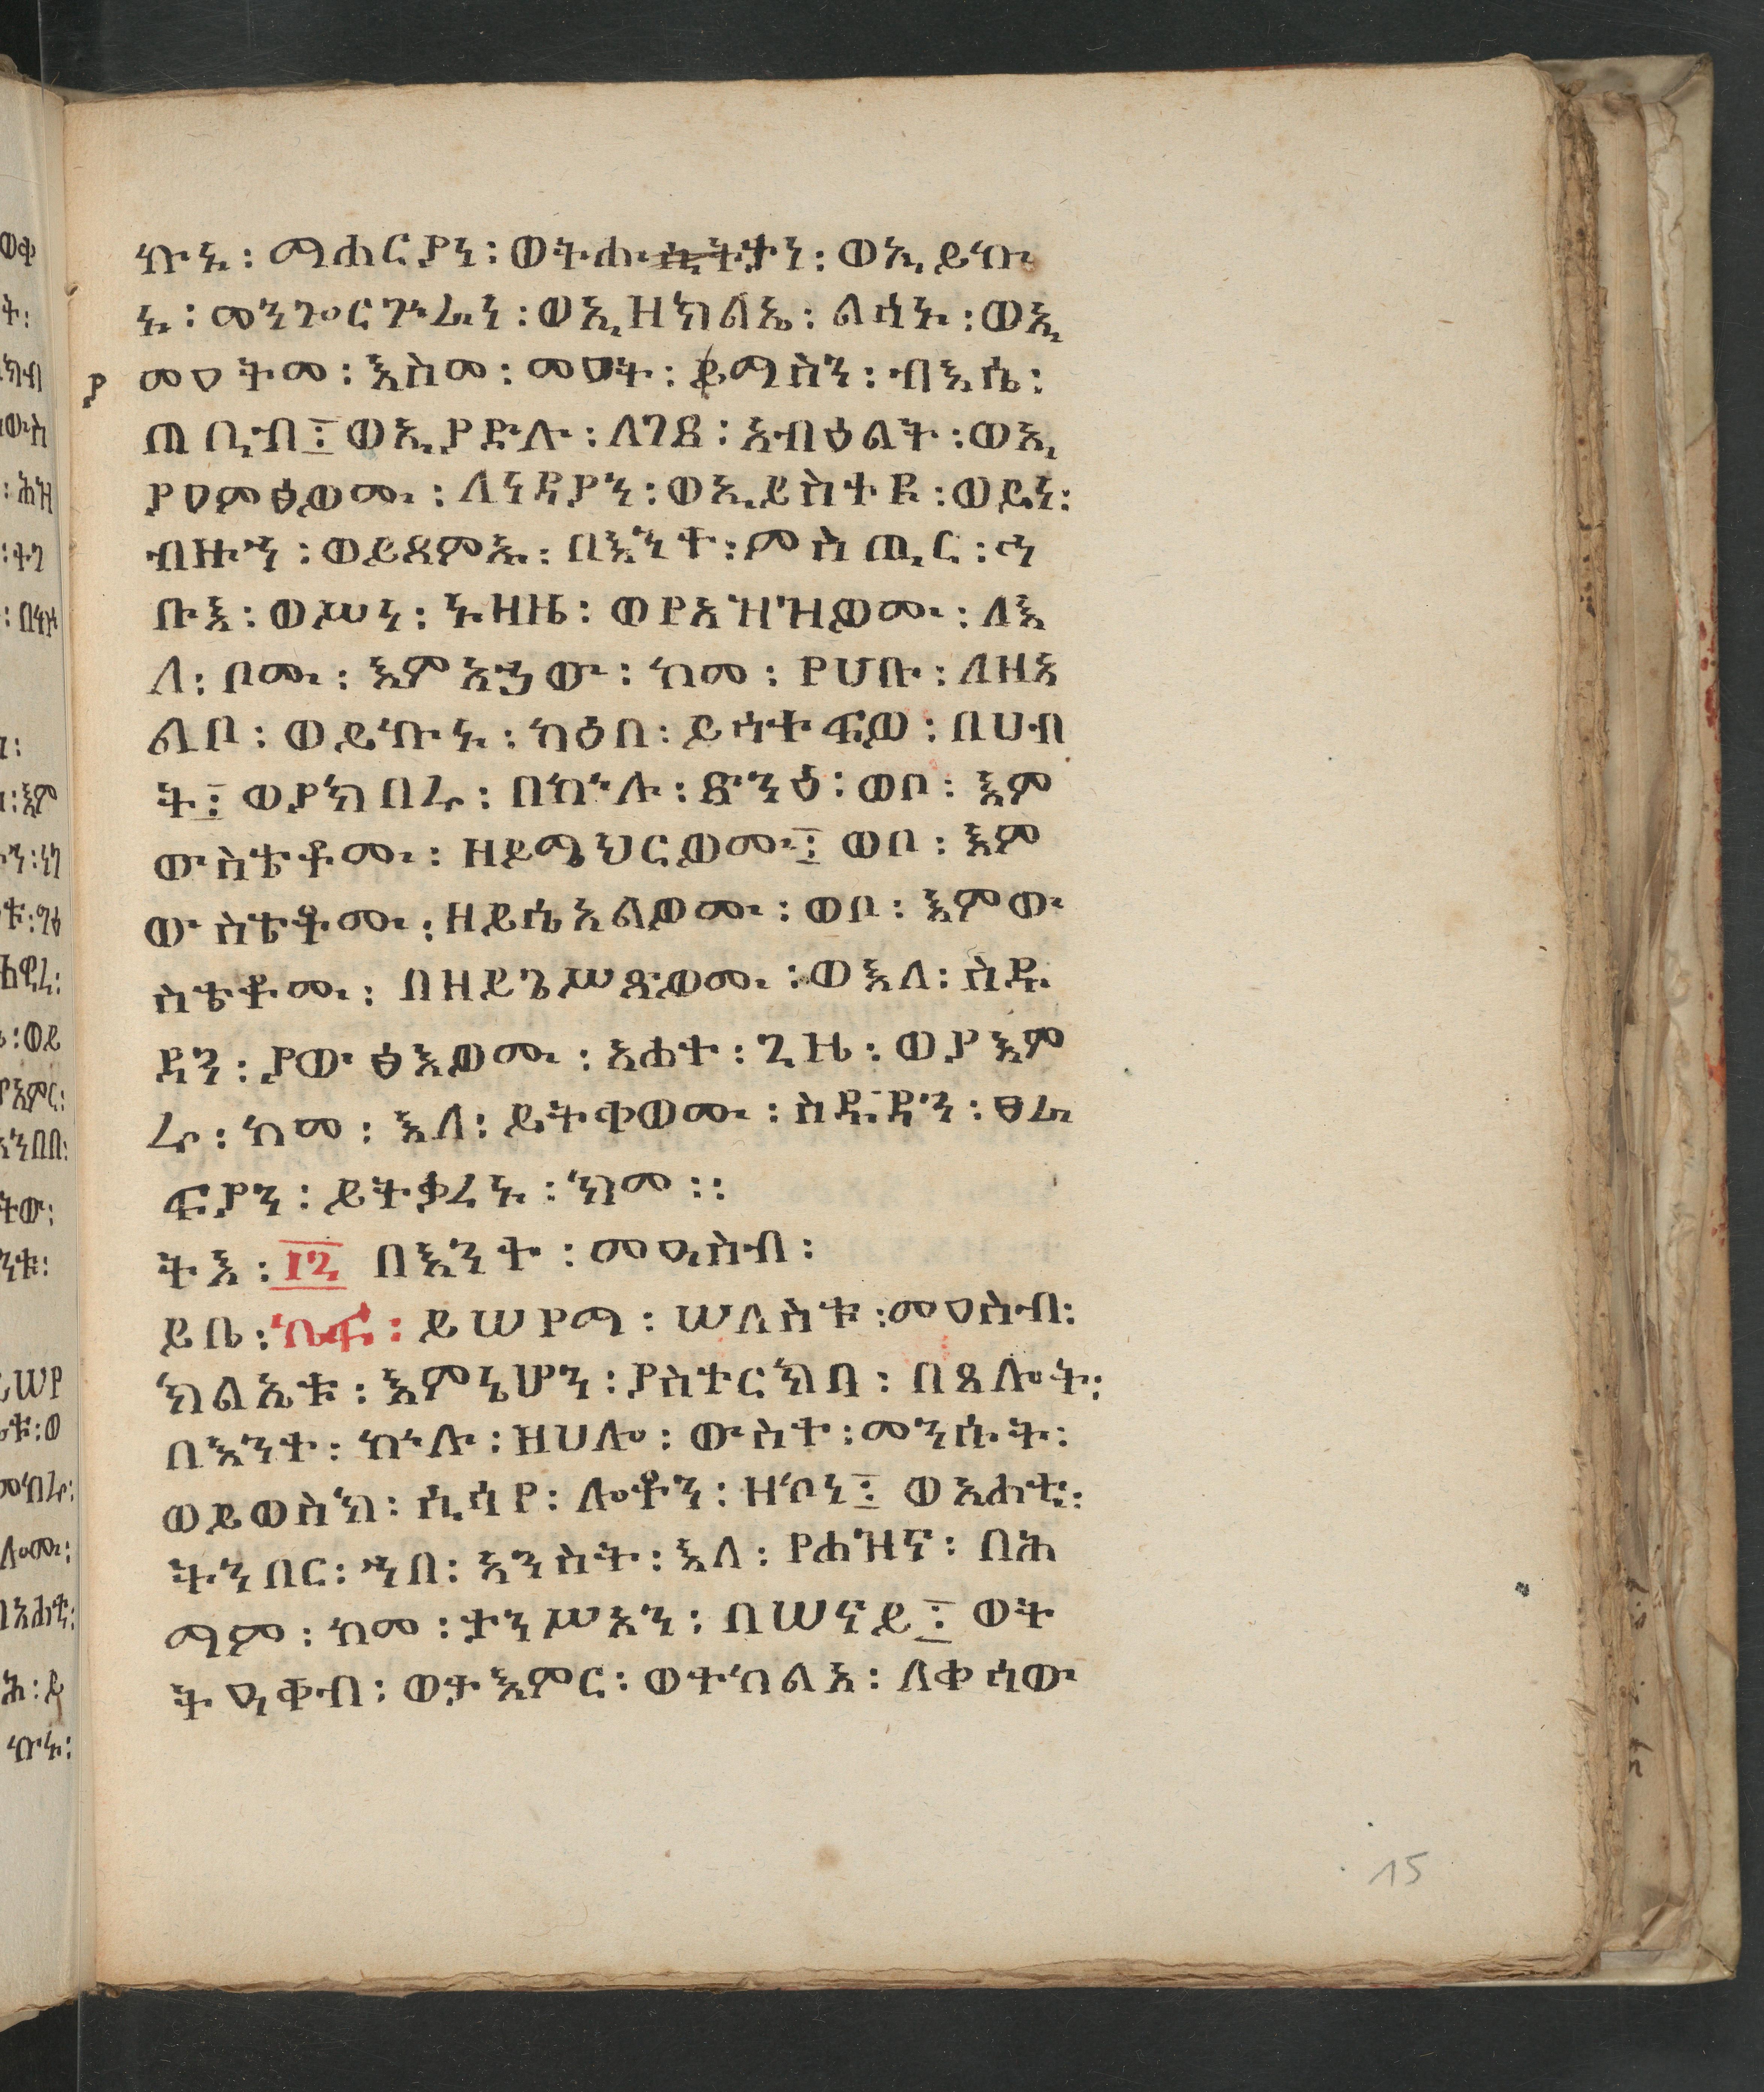 ኩኑ፡ ማሐርያነ፡ ወትሑትታነ፡ ወኢይኩ
ኑ፡ መንጐርጕራነ፡ ወኢዘክልኤ፡ ልሳኑ፡ ወኢ
መዐትመ፡ እስመ፡ መዐት፡ ያማስን፡ ብእሴ፡
ጠቢብ፤ ወኢያድሉ፡ ለገጸ፡ አብዕልት፡ ወኢ
ያዐምፅዎሙ፡ ለነዳያን፡ ወኢይስተዩ፡ ወይነ፡
ብዙኅ፡ ወይጻምኡ፡ በእንተ፡ ምስጢር፡ ኅ
ቡእ፡ ወሠነ፡ ኑዛዜ፡ ወየአዝዝዎሙ፡ ለእ
ለ፡ ቦሙ፡ እምአኃው፡ ከመ፡ የሀቡ፡ ለዘአ
ልቦ፡ ወይኩኑ፡ ካዕበ፡ ይሳተፍዎ፡ በሀብ
ት፤ ወያክበሩ፡ በኵሉ፡ ጽንዕ፡ ወቦ፡ እም
ውስቴቶሙ፡ ዘይሜህርዎሙ፤ ወቦ፡ እም
ውስቴቶሙ፡ ዘይሴአልዎሙ፡ ወቦ፡ እምው
ስቴቶሙ፡ በዘይጌሥጽዎሙ፡ ወእለ፡ ስዱ
ዳን፡ ያውፅእዎሙ፡ አሐተ፡ ጊዜ፡ ወያእም
ሩ፡ ከመ፡ እለ፡ ይትቀወሙ፡ ስዱዳን፡ ፀራ
ፍያን፡ ይትቃረኑ፡ ክመ፡፡
ትእ፡ ፲፯ በእንተ፡ መዓስብ፡
ይቤ፡ ኬፋ፡ ይሠየማ፡ ሠለስቱ፡ መዐስብ፡
ክልኤቱ፡ እምኔሆን፡ ያስተርክባ፡ በጸሎት፡
በእንተ፡ ኵሉ፡ ዘሀሎ፡ ውስተ፡ መንሱት፡
ወይወስክ፡ ሲሳየ፡ ሎቶን፡ ዘኮነ፤ ወአሐቲ፡
ትንበር፡ ኀበ፡ አንስት፡ እለ፡ የሐዝና፡ በሕ
ማም፡ ከመ፡ ታንሥአን፡ በሠናይ፤ ወት
ትዓቀብ፡ ወታእምር፡ ወተከልአ፡ ለቀሳው
15